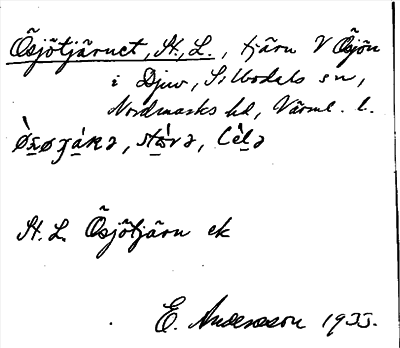 Ösjötjärnet, St., L., tjärn V Ösjön
i Djuv, Silbodals sn,
Nordmarks hd, Värml. l.
St. L. Ösjötjärn ek
E. Andersson 1933.